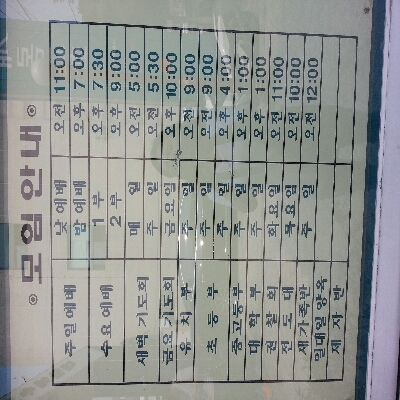 모임안내
주일예배 낮예배 오전 11:00
밤예배 오후 7:00
수요예배 1부 오후 7:30
2부 오후 9:00
새벽기도회 매 일 오전 5:00
주 일 오전 5:30
금요기도회 금요일 오후 10:00
유 치 부 주 일 오전 9:00
초 등 부 주 일 오전 9:00
주 일 오후 4:00
중고등부 주 일 오후 1:00
대 학 부 주 일 오후 1:00
권 찰 회 화요일 오전 11:00
전 도 대 목요일 오전 10:00
새가족반 주 일 12:00
일대일양육
제 자 반